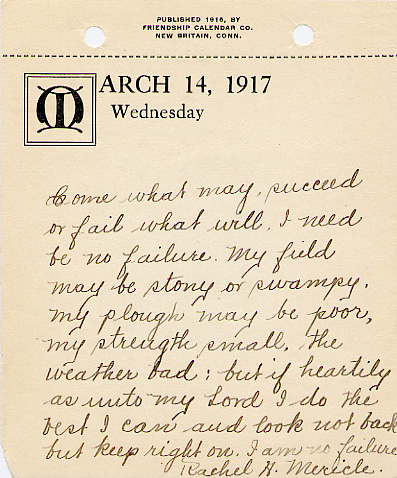 PUBLISHED 1916, BY
FRIENDSHIP CALENDAR CO.
NEW BRITAIN, CONN.
MARCH 14, 1917
Wednesday
Come what may, succeed
or fail what will, I need
be no failure. My field
may be stony or swampy,
my plough may be poor,
my strength small, the
weather bad; but if heartily
as unto my Lord I do the
best I can and look not back
but keep right on. I am no failure
Rachel H. Mericle.